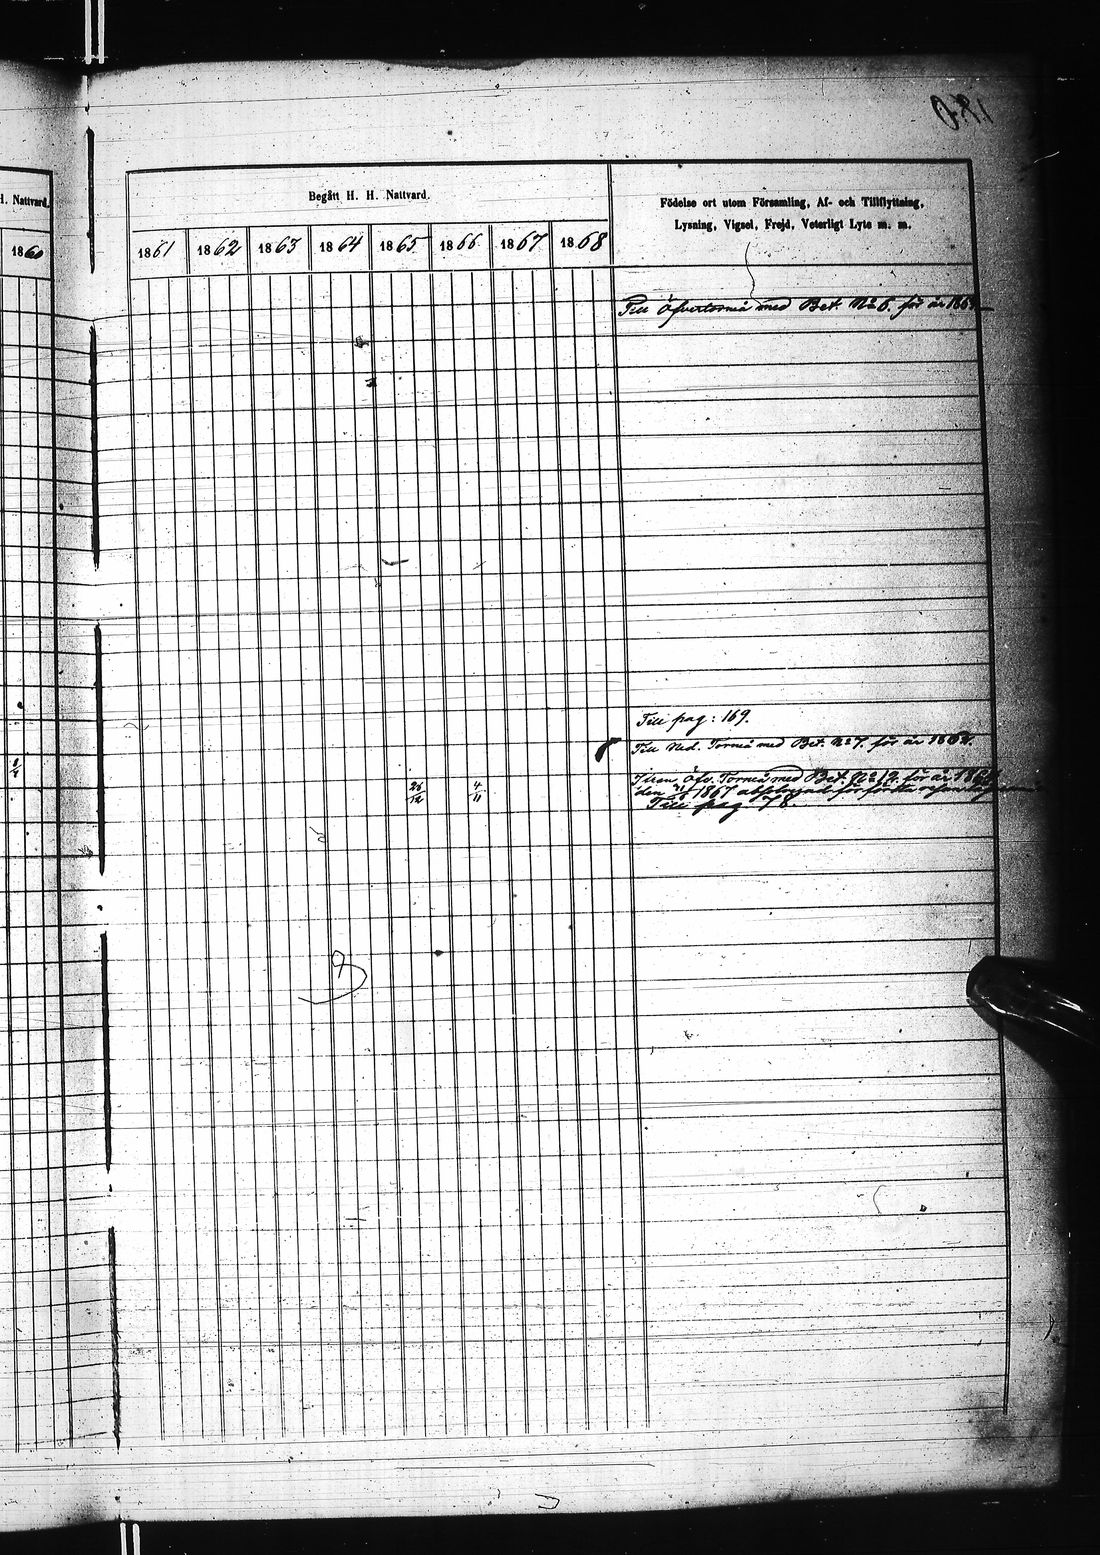 H. Nattvard.
1860
Begått H. H. Nattvard.
Födelse ort utom Församling, Af- och Tillflyttning,
Lysning, Vigsel, Frejd, Veterligt Lyte m. m.
1861 1862 1863 1864 1865 1866 1867 1868
Till Öfvertorneå med Bet. No 6. för år
Till pag: 169.
Till Ned. Torneå med Bet. No 7. för år 1862.
Öfv. Torneå med Bet. No 12. för år
den 1867
Till pag 78
25/12 4/11